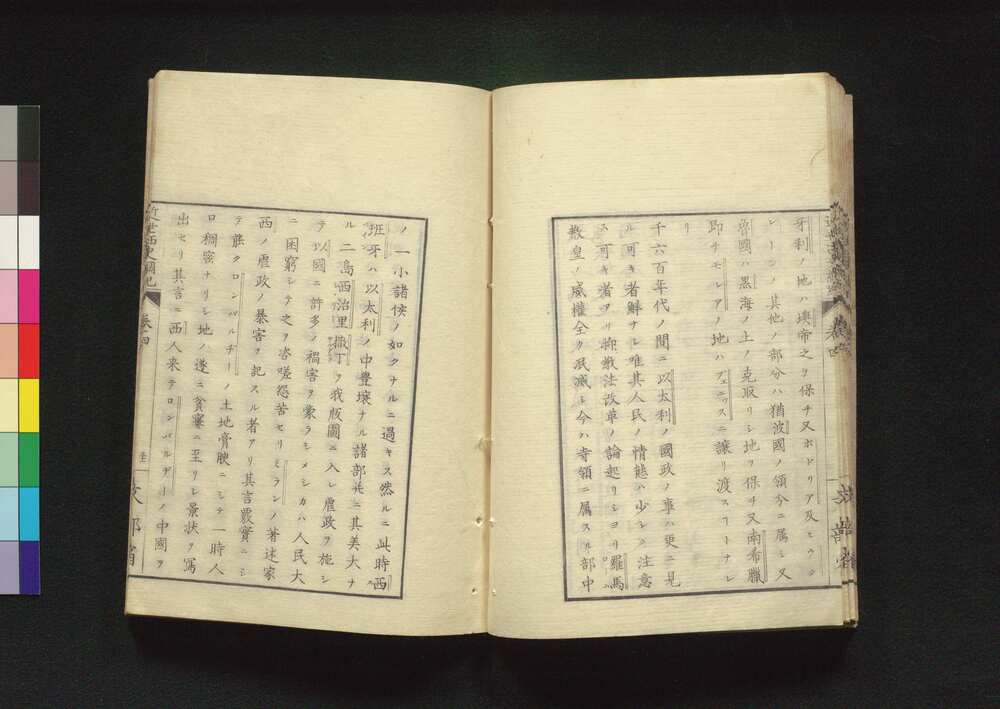 牙利ノ地ハ墺帝之ヲ保チ又ホドリア及ヒウン
レーシノ其他ノ部分ハ猶波國ノ領分ニ属シ又
魯國ハ黒海ノ上ノ克取リシ地ヲ保チ又南希臘
即チモレアノ地ハフェニウスニ譲リ渡スヿトナレ
リ
千六百年代ノ間ニ以太利ノ國政ノ事ハ更ニ見
ル可キ者鮮ナシ唯其人民ノ情態ハ少シク注意
ス可キ者アリ抑教法改革ノ論起リシヨリ羅馬
教皇ノ威權全ク泯滅シ今ハ寺領ニ属スル部中
ノ一小諸侯ノ如クナルニ過キス然ルニ此時西
班牙ハ以太利ノ中豊壌ナル諸部并ニ其美大ナ
ル二島西治里撒丁ヲ我版圖ニ入レ虐政ヲ施シ
テ以國ニ許多ノ禍害ヲ蒙ラシメシカハ人民大
ニ困窮シテ之ヲ咨嗟怨苦セリミランノ著述家
西ノ虐政ノ暴害ヲ記スル者アリ其言覈實ニシ
テ能クロンバルヂーノ土地膏腴ニシテ一時人
口稠密ナリシ地ノ遂ニ貧窶ニ至リシ景状ヲ寫
出セリ其言ニ西人来テロンバルヂーノ中國ヲ
近世西史綱紀 卷四
文部省